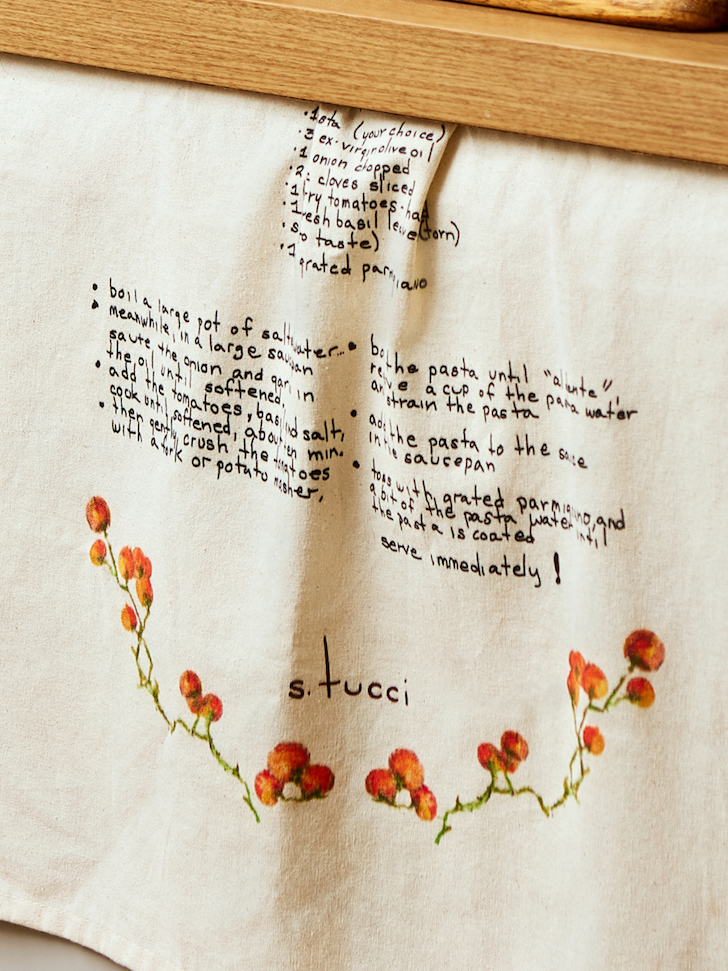 (your choice)
3 ex. virgin olive oil
1 onion chopped
cloves sliced
tomatoes
basil (torn)
taste)
grated parmigiano
• boil a large pot of saltwater...
• meanwhile, in a large
saute the onion and in
the oil until softened.
• add the tomatoes, salt,
cook until softened, about min.
• then gently crush the tomatoes
with a fork or potato masher.
• the pasta until
a cup of the water
strain the pasta
• add the pasta to the
in the saucepan
• toss with grated parmigiano, and
a bit of the pasta water until
the pasta is coated
serve immediately !
s. tucci